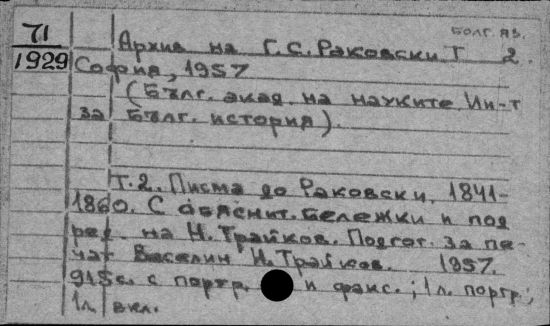 БОЛГ. ЯЗ.
71
1929
Архив на Г. С. Раковски. Т. 2.
София, 1957
(Бълг. акад. на науките. Ин-т
за Бълг. история).
Т. 2. Писма до Раковски. 1841-
1860. С обяснит. бележки и под
ред. на Н. Трайков. Подгот. за пе-
чат Веселин Н. Трайков. 1957.
915 с. с портр. и факс.; 1 л. портр;
1 л. вкл.